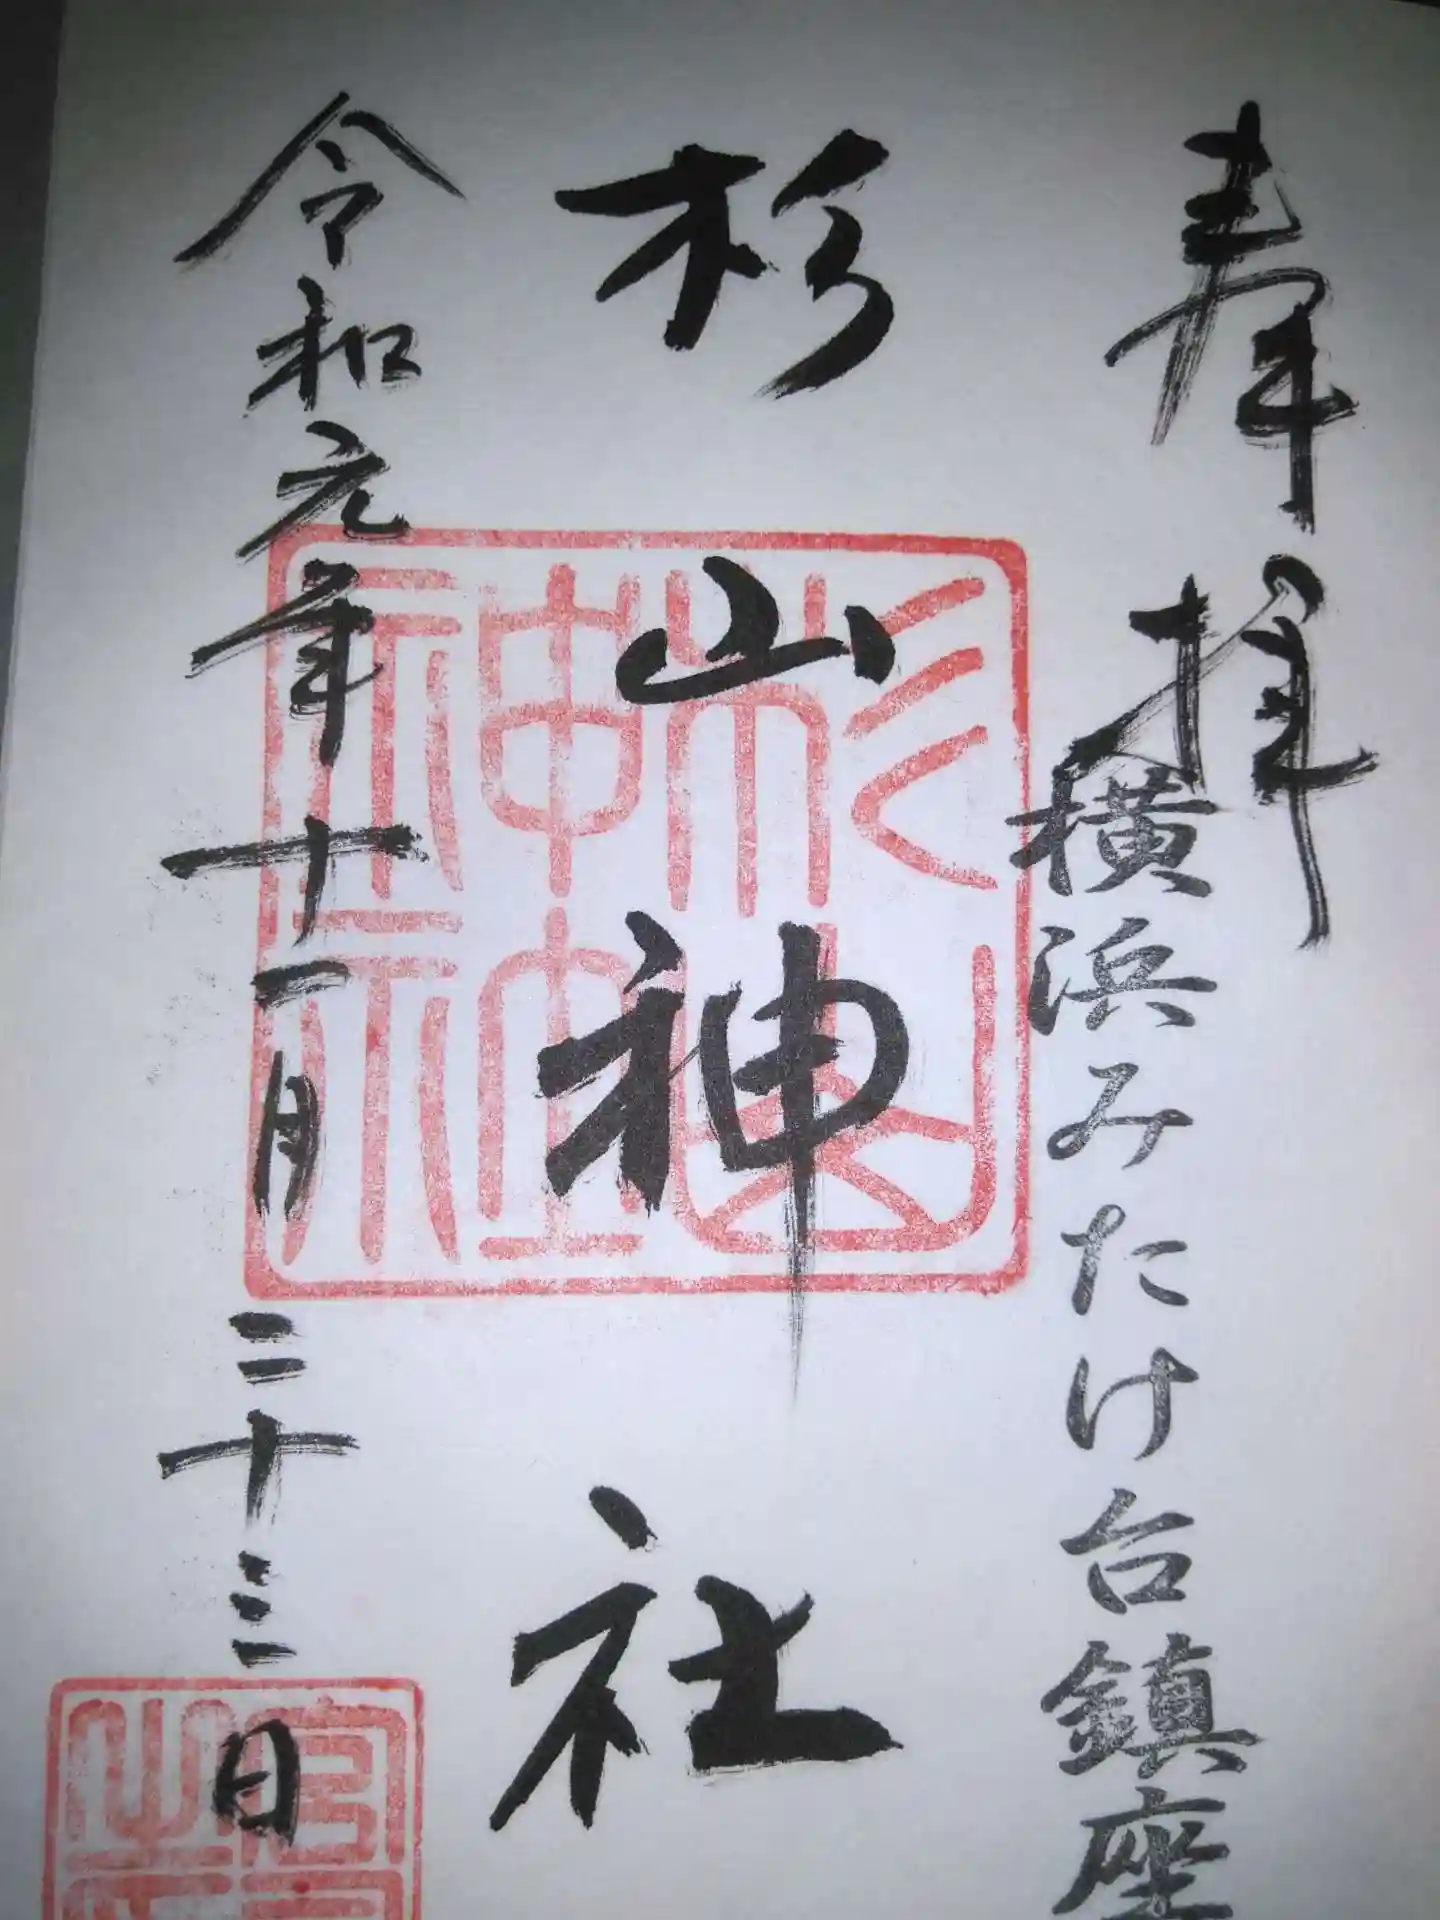 奉拝
横浜みたけ台鎮座
杉山神社
令和元年十一月二十三日
杉山神社神社